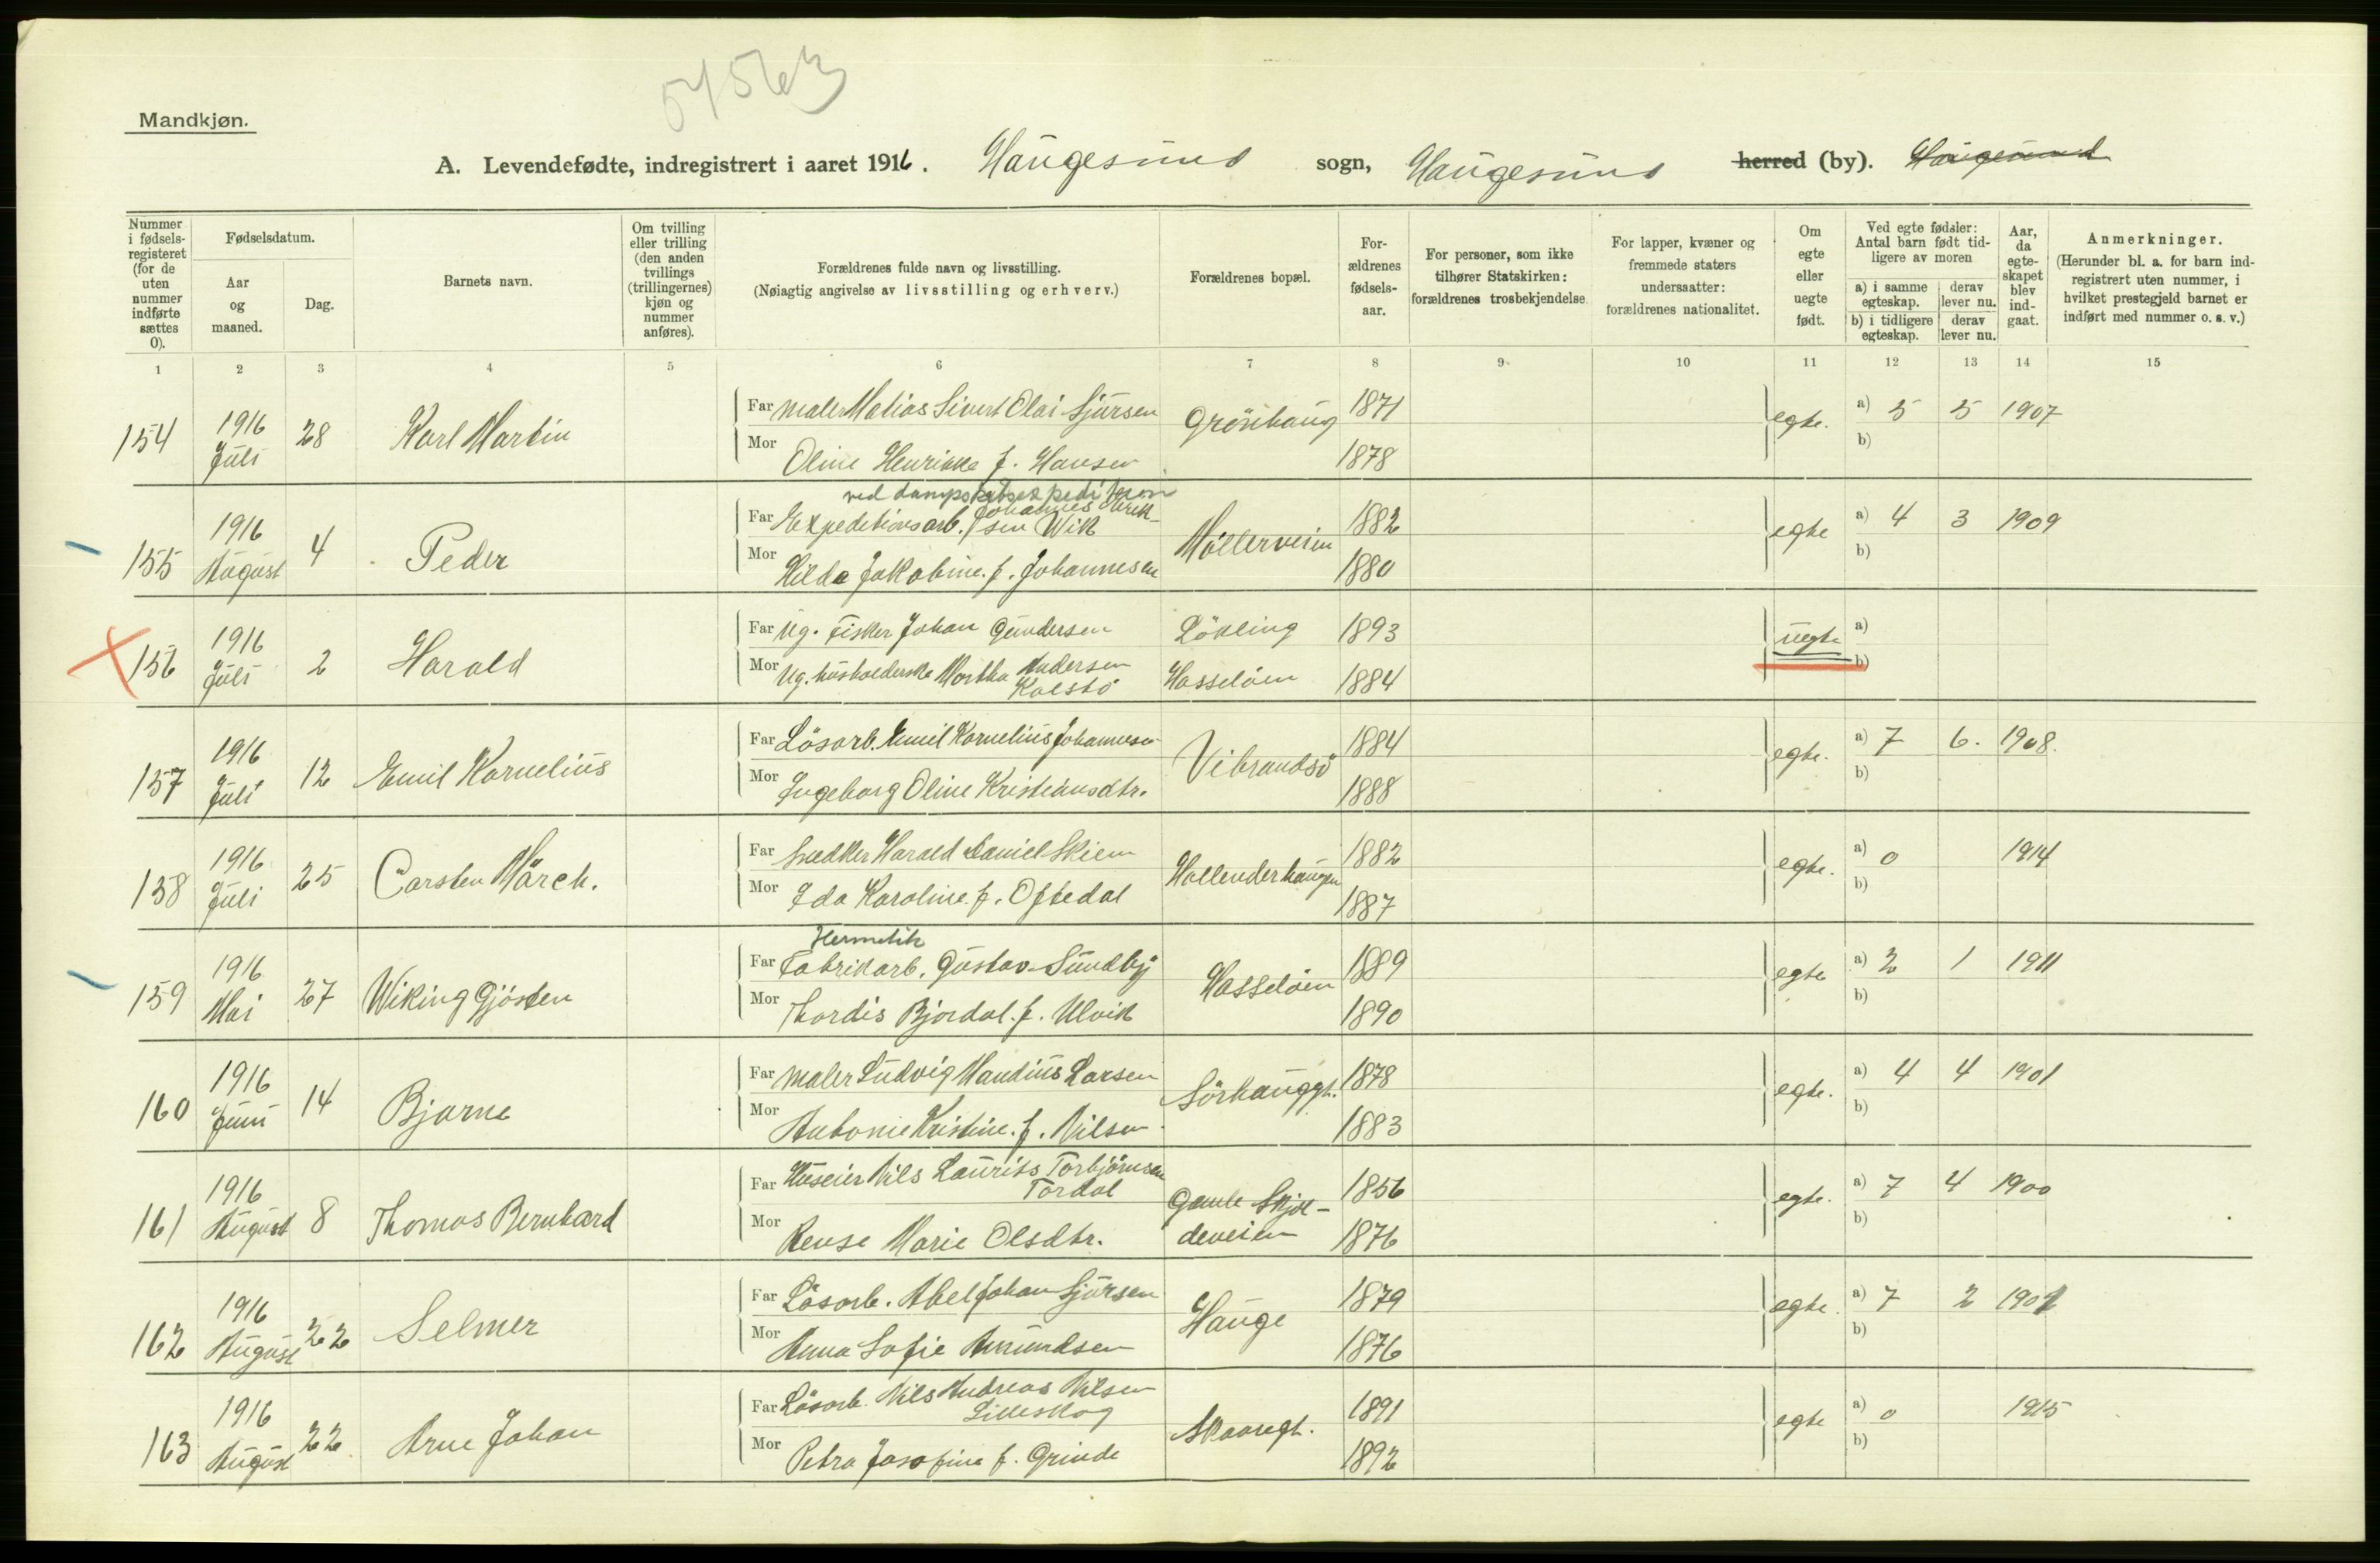 54563
Mandkjøn.
A. Levendefødte, indregistrert i aaret 1916. Haugesund sogn, Haugesund herred (by). Haugesund
Nummer i fødsels-registeret (for de uten nummer indførte sættes 0).
Fødselsdatum.
Aar og maaned.
Dag.
Barnets navn.
Om tvilling eller trilling (den anden tvillings (trillingernes) kjøn og nummer anføres).
Forældrenes fulde navn og livsstilling.
(Nøiagtig angivelse av livsstilling og erhverv.)
Forældrenes bopæl.
For-ældrenes fødsels-aar.
For personer, som ikke tilhører Statskirken: forældrenes trosbekjendelse
For lapper, kvæner og fremmede staters undersaatter: forældrenes nationalitet.
Om egte eller uegte født.
Ved egte fødsler: Antal barn født tid-ligere av moren
a) i samme egteskap.
derav lever nu.
b) i tidligere egteskap.
derav lever nu.
Aar, da egte-skapet blev ind-gaat.
Anmerkninger.
(Herunder bl. a. for barn ind-registrert uten nummer, i hvilket prestegjeld barnet er indført med nummer o. s. v.)
1 2 3 4 5 6 7 8 9 10 11 12 13 14 15
154 1916 Juli 28 Karl Martin
Far Maler Matias Sivert Olai Sjursen Grönhaug 1871 egte. a) 5 5 1907
Mor Oline Henrikke f. Hansen 1878 b)
ved dampskibsexpedition
155 1916 August 4 Peder
Far Expeditionsarb. Johannes Erik-sen Wik Möllerveien 1882 egte a) 4 3 1909
Mor Hilda Jakobine. f. Johannesen 1880 b)
156 1916 Juli 2 Harald
Far Ug. Fisker Johan Gundersen Lökling 1893 uegte a)
Mor Ug. husholderske Martha Andersen Kolstö Hasselöien 1884 b)
157 1916 Juli 12 Emil Kornelius
Far Lösarb. Emil Kornelius Johannesen Vibrandsö 1884 egte. a) 7 6. 1908.
Mor Ingeborg Oline Kristiansdtr. 1888 b)
158 1916 Juli 25 Carsten Märch.
Far Snedker Harald Daniel Skiem Hollenderhaugen 1882 egte. a) 0 1914
Mor Ida Karoline. f. Oftedal 1887 b)
Hermetik
159 1916 Mai 27 Wiking Gjösten
Far Fabrikarb. Gustav Sundby Hasselöien 1889 egte a) 2 1 1911
Mor Thordis Bjordal. f. Ulvik 1890 b)
160 1916 Juni 14 Bjarne
Far Maler Ludvig Mandius Larsen Sörhauggt. 1878 egte. a) 4 4 1901
Mor Antonie Kristine. f. Nilsen 1883 b)
161 1916 August 8 Thomas Bernhard
Far Huseier Nils Laurits Torbjörnsen Tordal Gamle Skjol-deveien 1856 egte. a) 7 4 1900
Mor Rense Marie Olsdtr. 1876 b)
162 1916 August 22 Selmer
Far Lösarb. Abel Johan Sjursen Hauge 1879 egte. a) 7 2 1902
Mor Anna Sofie Amundsen 1876 b)
163 1916 August 22. Arne Johan
Far Lösarb. Nils Andreas Nilsen Lilleskog Skaaregt. 1891 egte a) 0 1915
Mor Petra Josofine f. Grinde 1892 b)